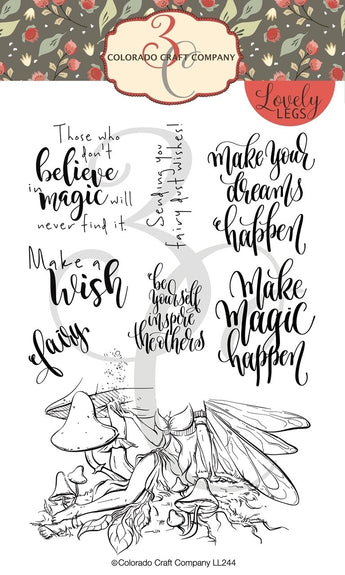 3C
COLORADO CRAFT COMPANY
Lovely
LEGS
Those who
don't
believe
in magic will
never find it.
Sending you
fairy dust wishes!
make your
dreams
happen
Make a
Wish
be
yourself
inspire
the others
Make
magic
happen
fairy
©Colorado Craft Company LL244